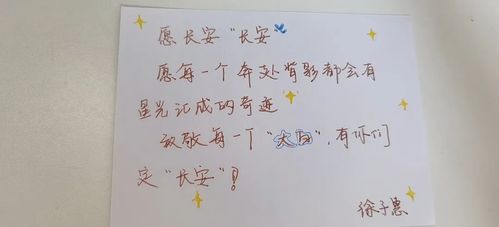 愿长安“长安”
愿每一个奔赴背影都会有
星光记成的奇迹
致敬每一个“大白”,有你们
定“长安”!
徐子